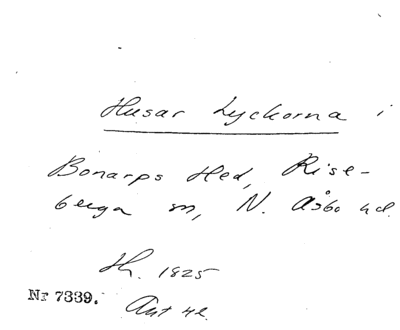 Husar Lyckorna i
Bonarps Hed, Rise-
berga sn, N. Åsbo hd.
1825
Nr 7339. Akt 42